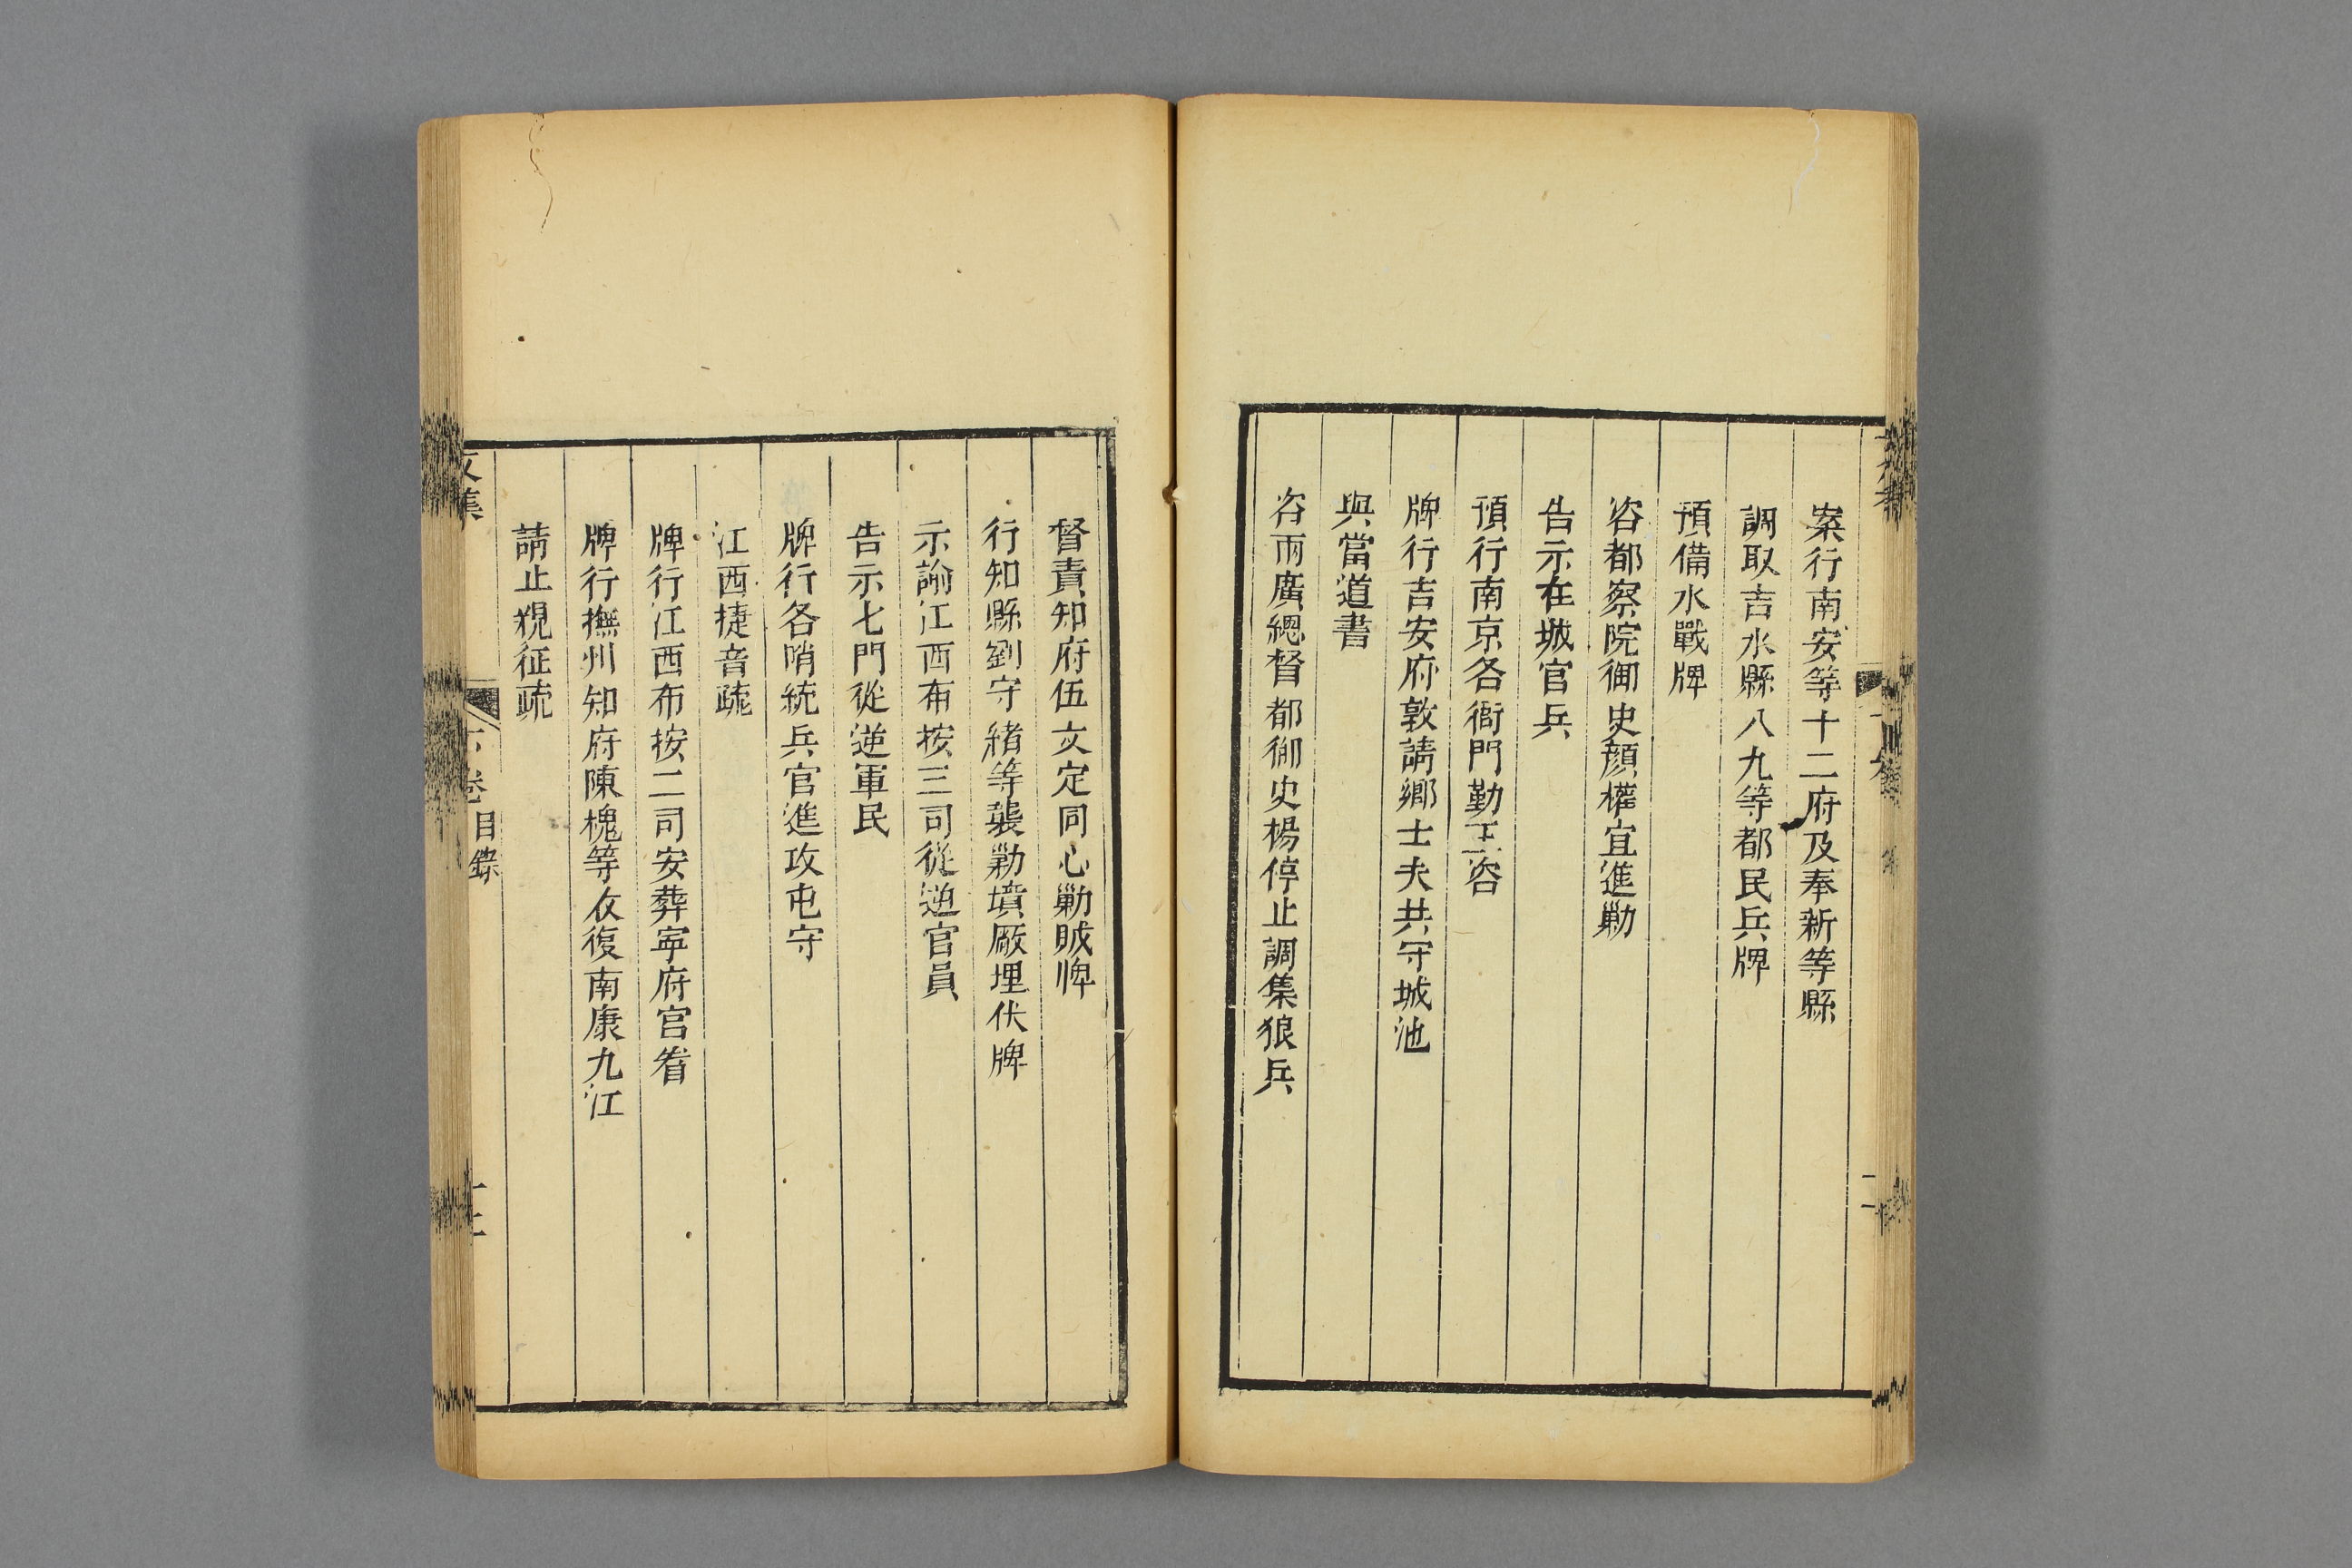 案行南安等十二府及奉新等縣
調取吉水縣八九等都民兵牌
預備水戰牌
咨都察院御史顔權宜進勦
告示在城官兵
預行南京各衙門勤王咨
牌行吉安府敦請鄉士夫共守城池
與當道書
咨兩廣總督都御史楊停止調集狼兵
督責知府伍文定同心勦賊牌
行知縣劉守緒等襲勦墳厰埋伏牌
示諭江西布按三司從逆官員
告示七門從逆軍民
牌行各哨統兵官進攻屯守
江西捷音疏
牌行江西布按二司安葬寧府宫眷
牌行撫州知府陳槐等收復南康九江
請止親征疏
文集
下卷目錄